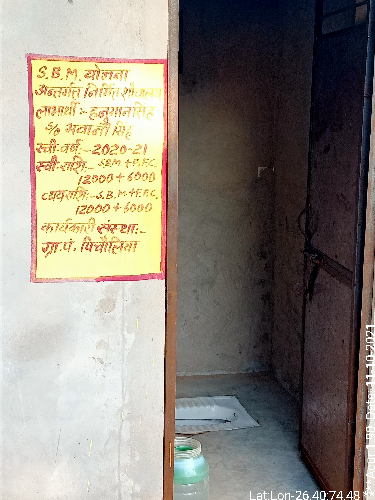 S.B.M. योजना
अन्तर्गत निर्मित शौचालय
लाभार्थी:- हनुमान सिंह
S/o भवानी सिंह
स्वी. वर्ष:- 2020-21
स्वी. राशि:- S.B.M + F.F.C
12000 + 6000
व्यय राशि:- S.B.M + F.F.C.
12000 + 6000
कार्यकारी संस्था:-
ग्रा. पं. पिचौलिया
Date: 11-10-2021
Lat Lon-26.40:74.48